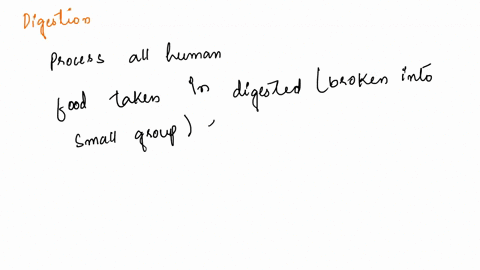 Digestion
Process all human
food taken in digested (broken into
small group) ,